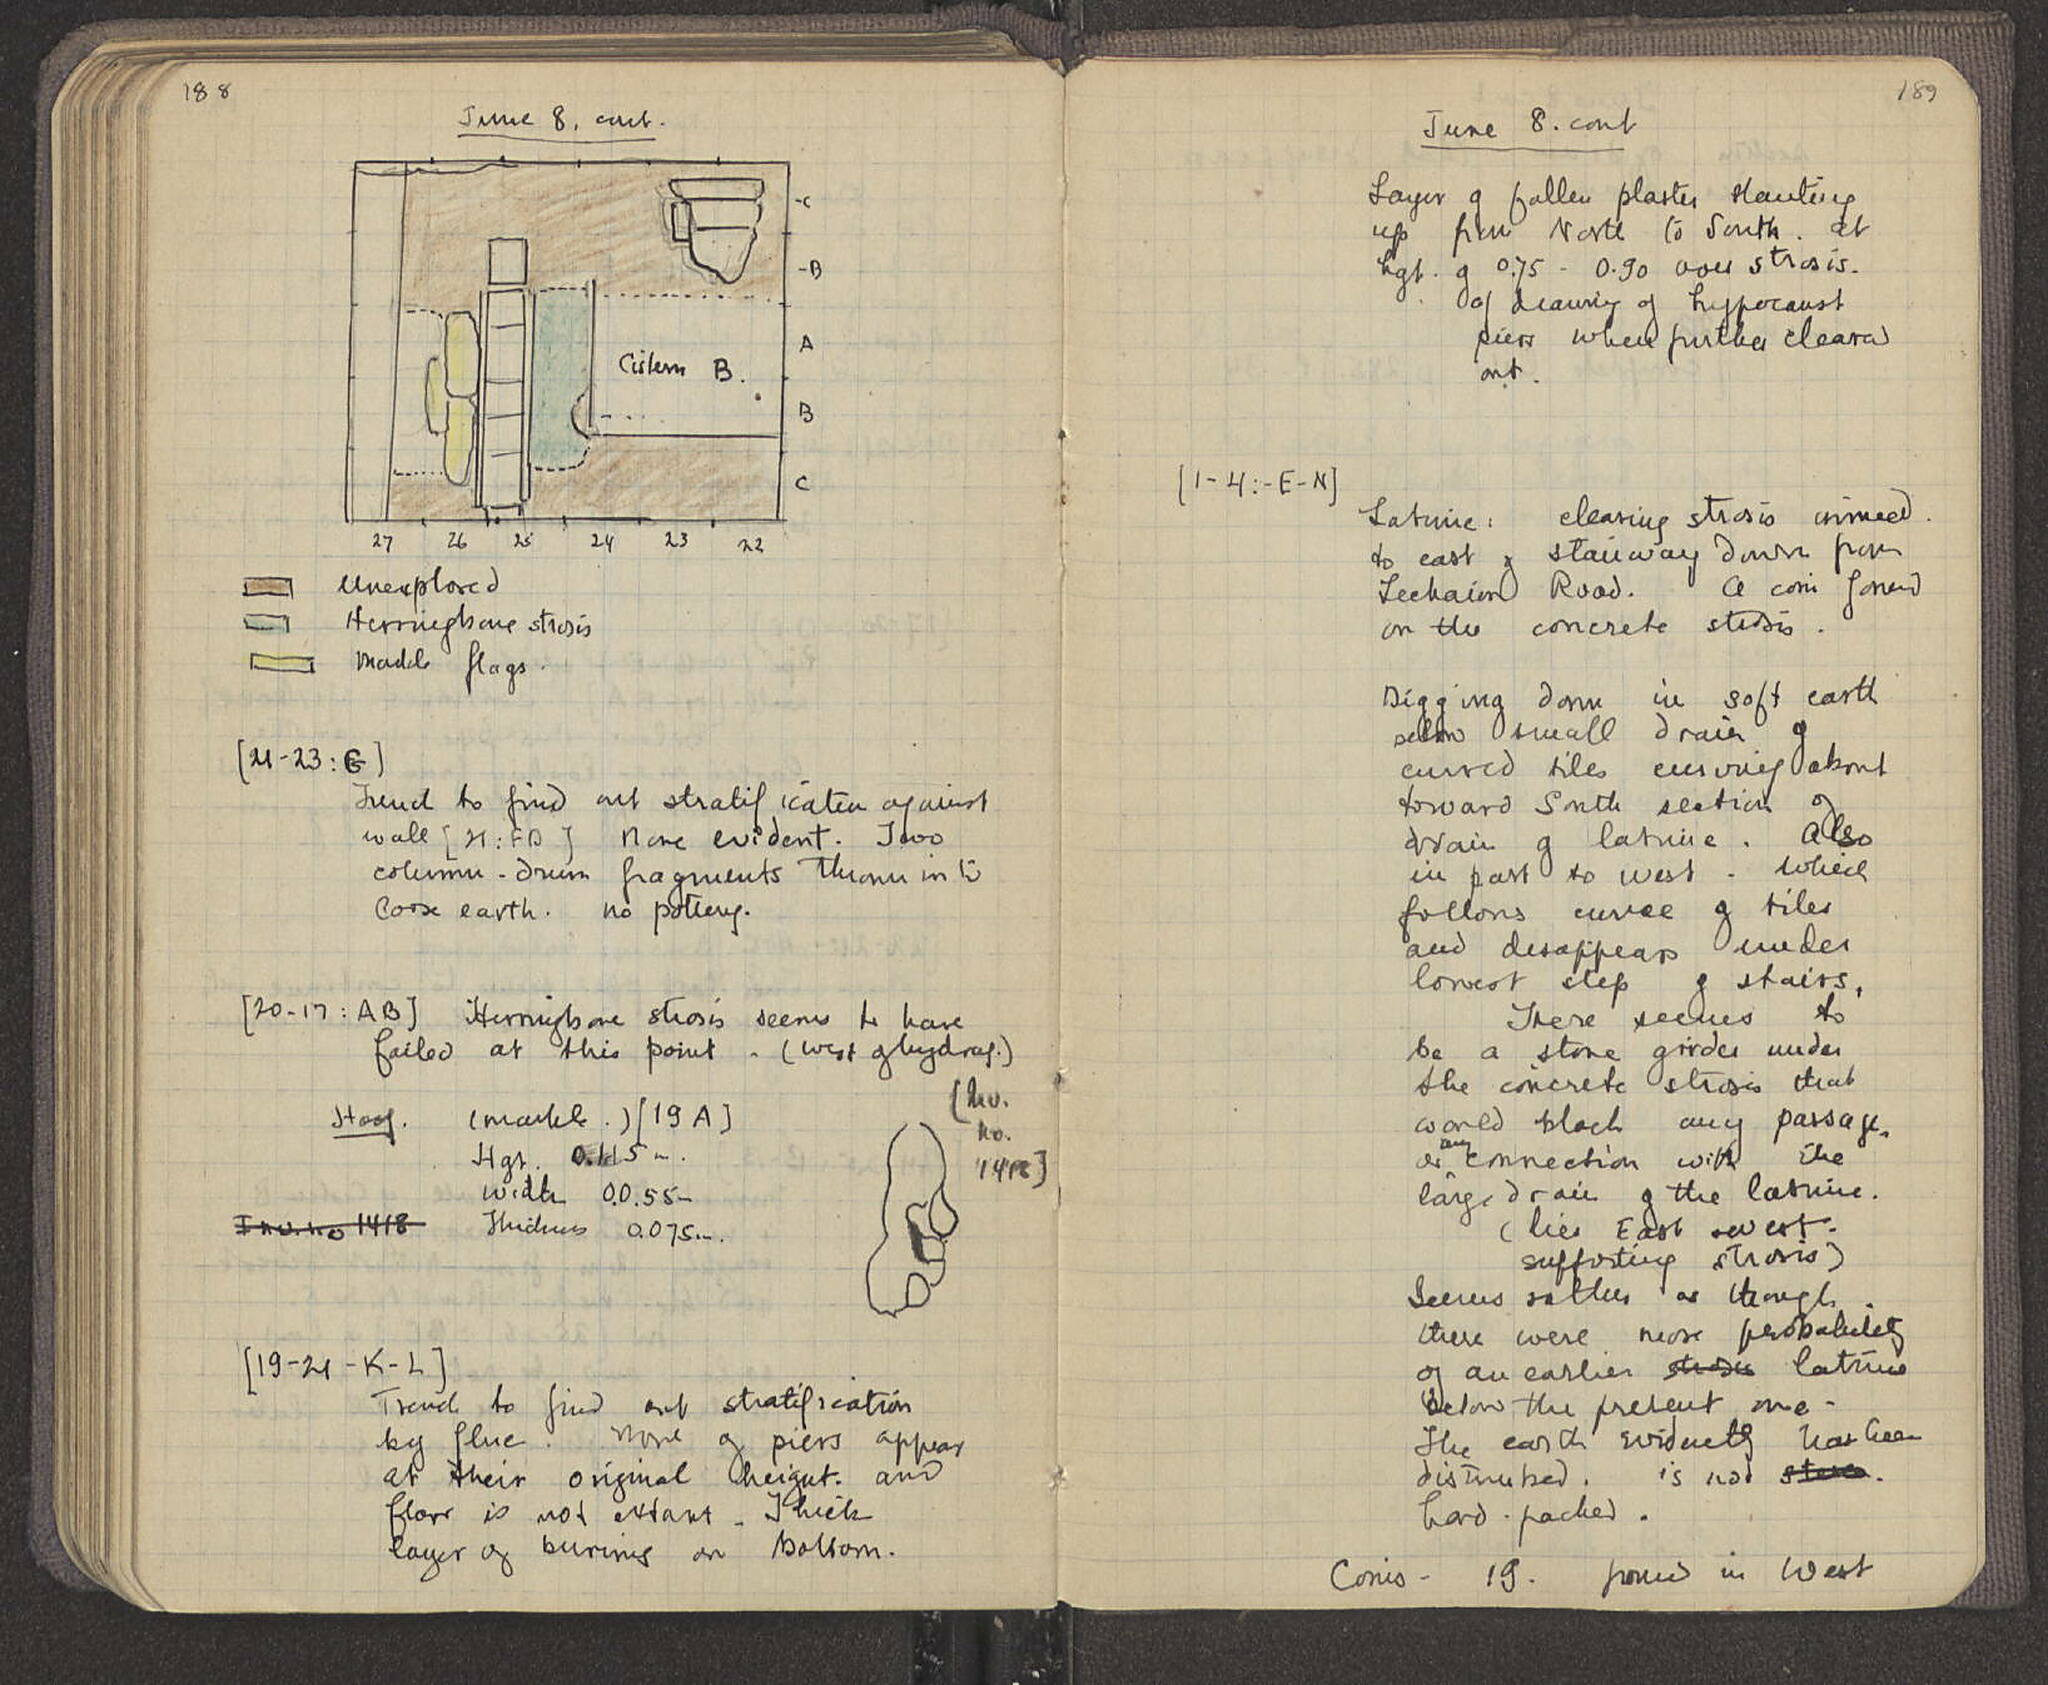 188
June 8, cont.
-C
-B
A
Cistern B.
B
C
27 26 25 24 23 22
Unexplored
Herringbone strosis
Marble flags.
[21-23:G]
Trench to find out stratification against
wall [21:FD] None evident. Two
column-drum fragments thrown into
loose earth. no pottery.
[20-17:AB] Herringbone strosis seems to have
failed at this point - (west of hydrag.)
Hoof. (marble.) [19 A]
Hgt. 0.115m.
width 0.055m
Inv. no 1418 Thickness 0.075m.
(Inv.
no.
1418]
[19-21-K-L]
Trench to find out stratification
by flue. None of piers appear
at their original height. and
floor is not extant. Thick
layer of burning on bottom.
189
June 8. cont
Layer of fallen plaster slanting
up from North to South. at
hgt. of 0.75 - 0.90 over strosis.
of drawing of hypocaust
piers when further cleared
out.
[1-4:-E-N]
Latrine: clearing strosis immed.
to east of stairway down from
Lechaion Road. A coin found
on the concrete strosis.
Digging down in soft earth
below small drain of
curved tiles curving about
toward South section of
drain of latrine. Also
in part to west - which
follows curve of tiles
and disappears under
lowest step of stairs.
There seems to
be a stone girder under
the concrete strosis that
would block any passage,
or any connection with the
large drain of the latrine.
(lies East-west-
supporting strosis)
Seems rather as though
there were more probability
of an earlier strosis latrine
below the present one -
The earth evidently has been
disturbed. is not
hard-packed.
Coins - 19. found in West